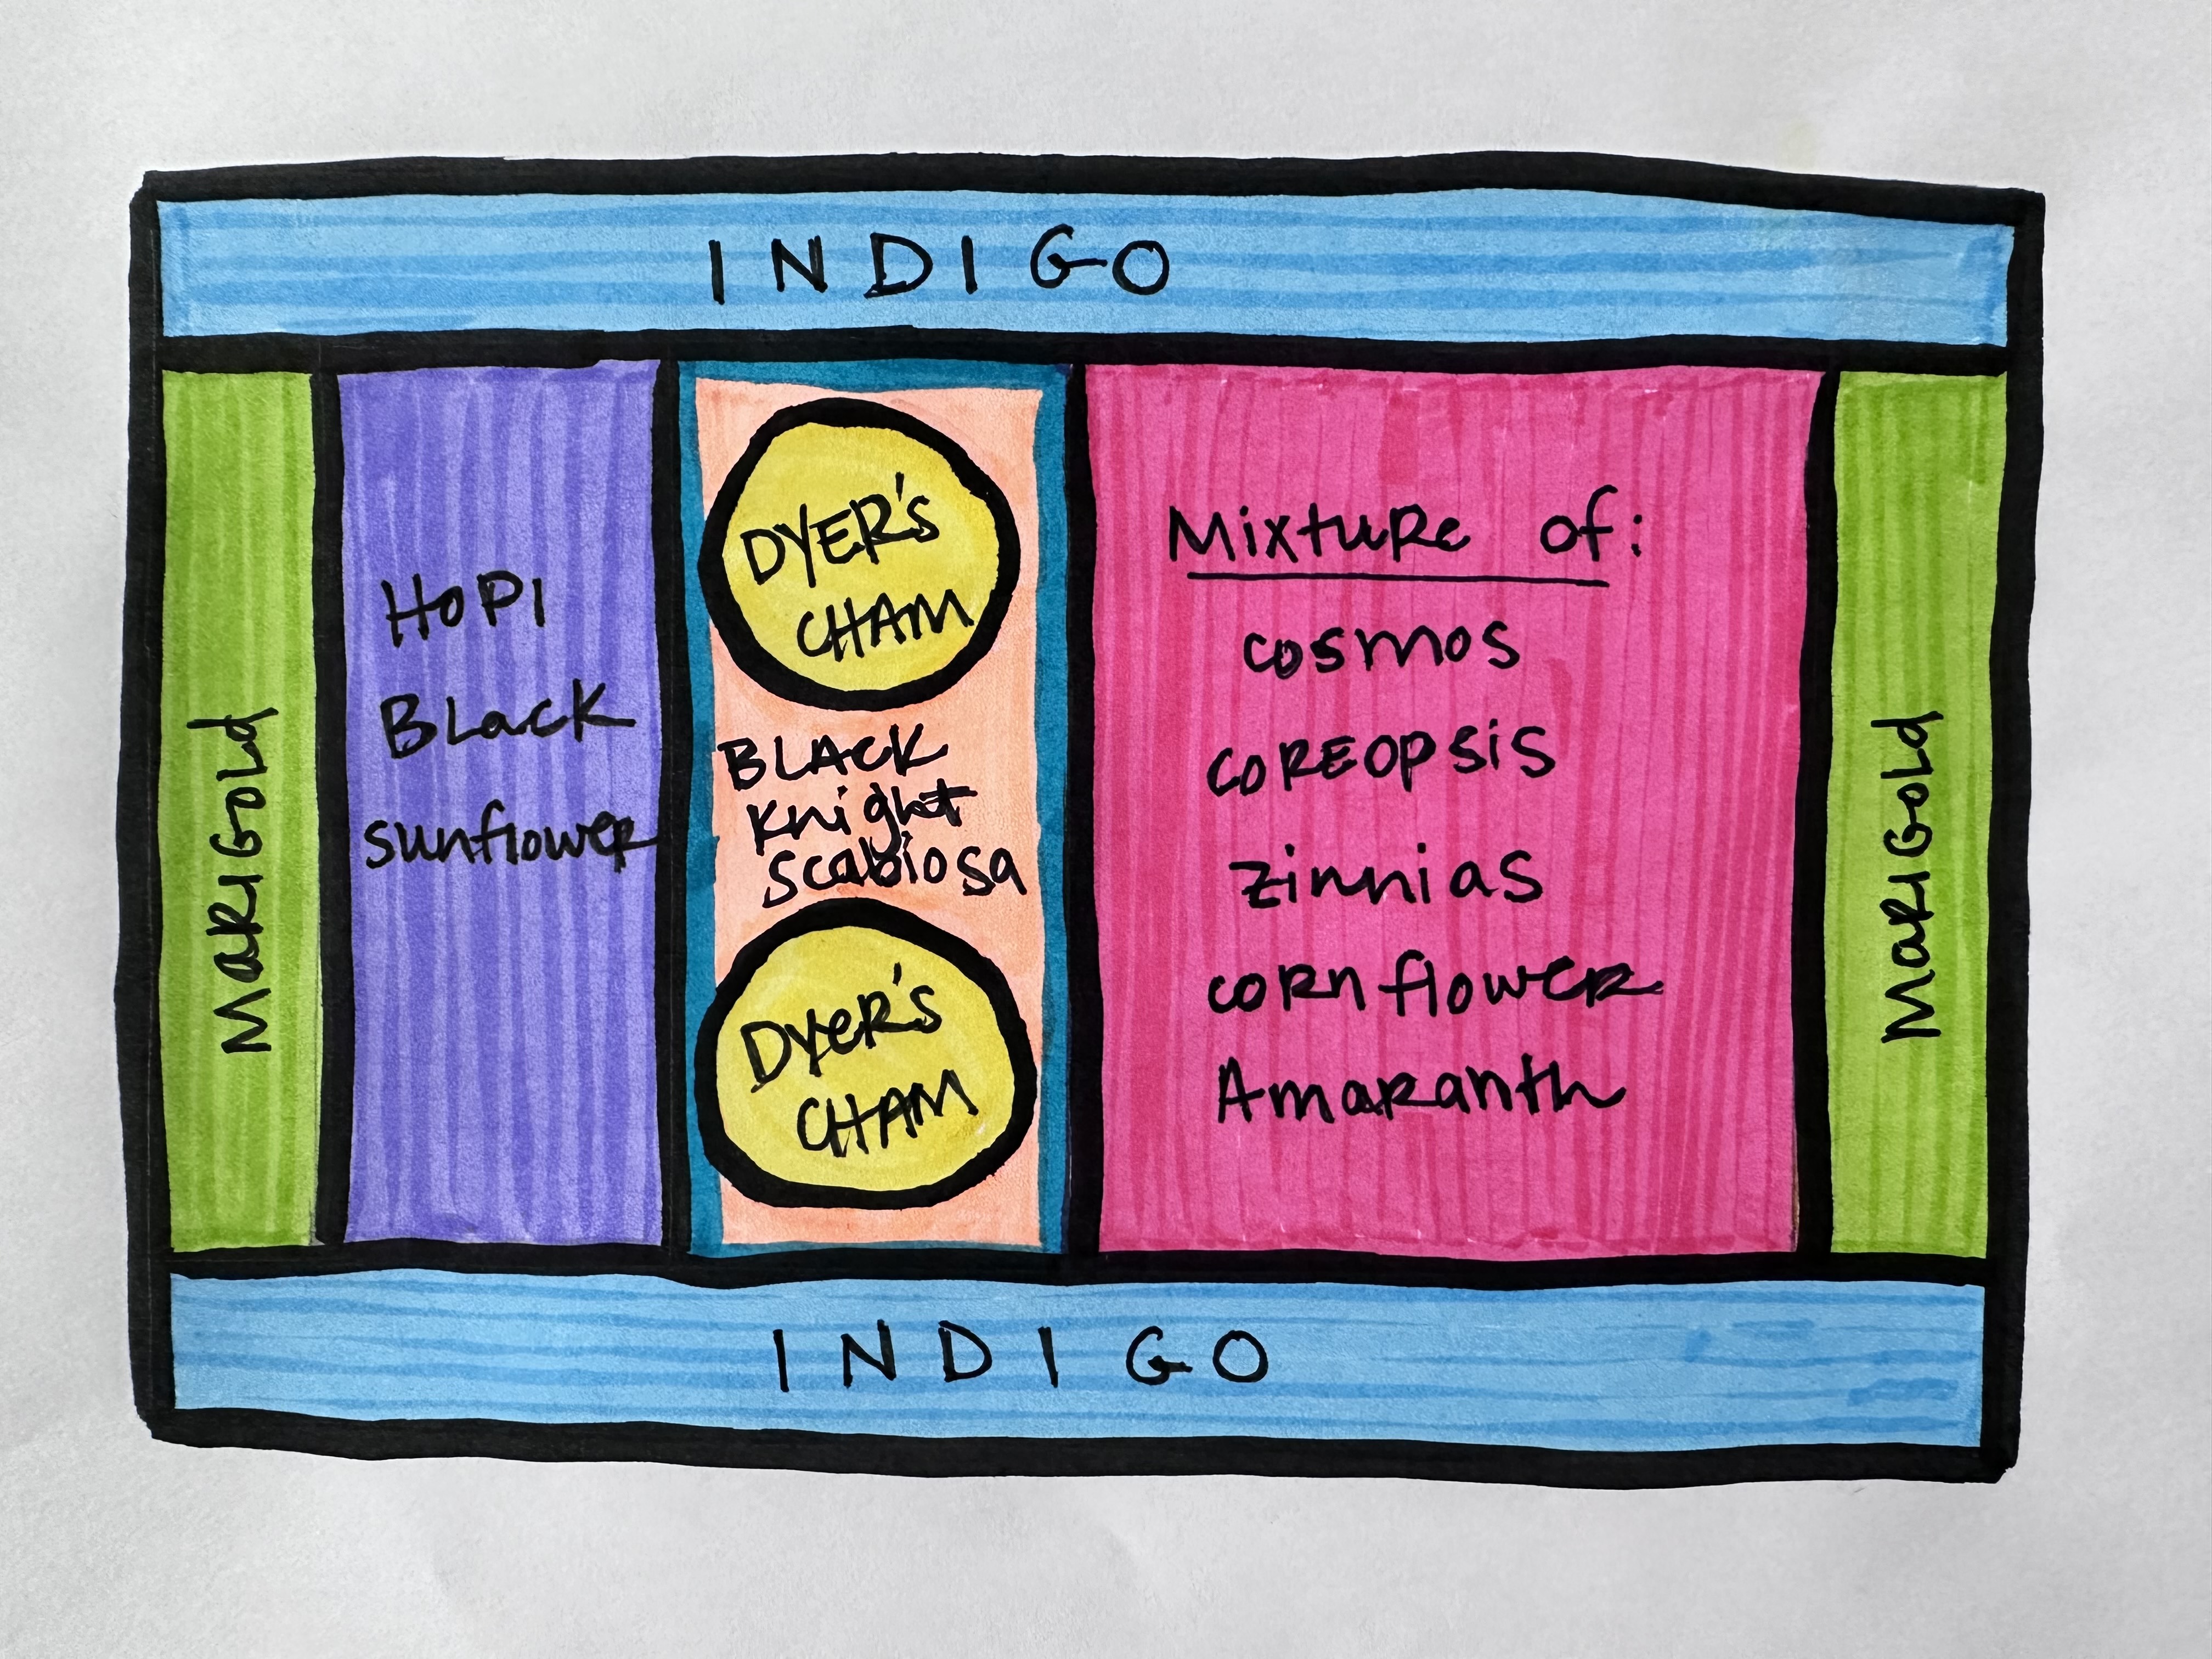 INDIGO
MARIGOLD
HOPI
BLACK
sunflower
DYER's
CHAM
BLACK
Knight
Scabiosa
DYeR's
CHAM
MixtuRe of:
cosmos
coREOpsis
zinnias
cornflower
AmaRanth
MARIGOLD
INDIGO